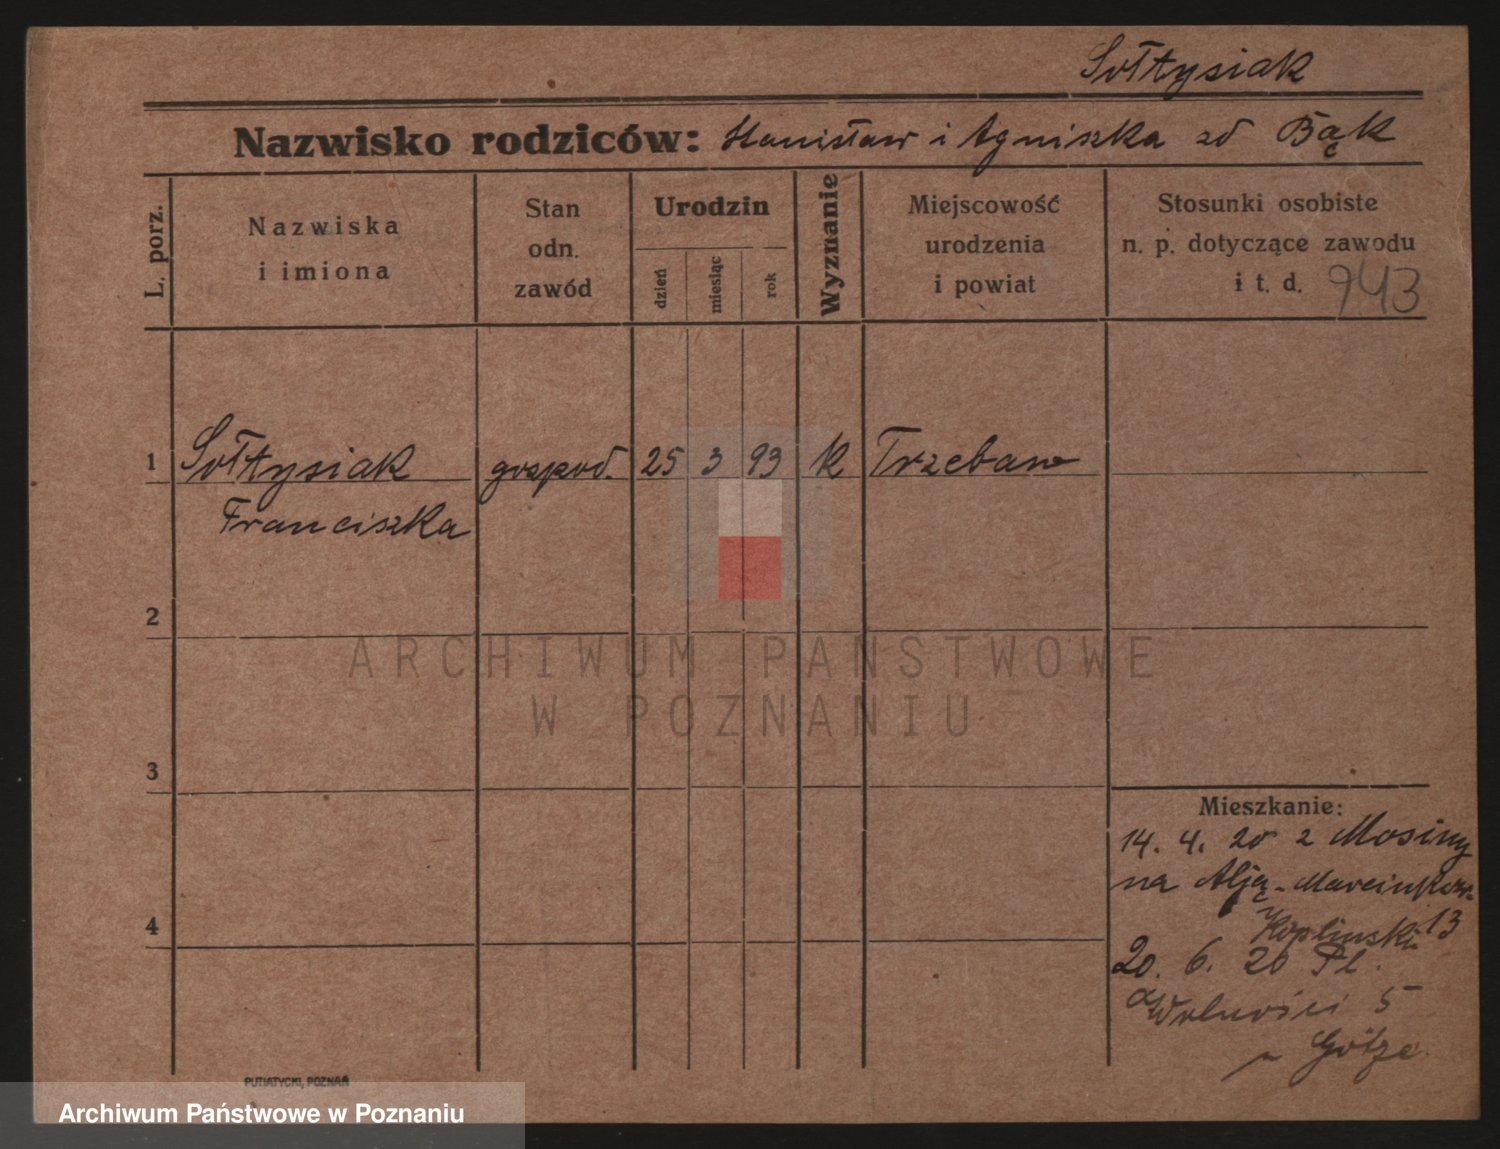 Sołtysiak
Nazwisko rodziców: Stanisław i Agniszka zd Bąk
L. porz.
Nazwiska
i imiona
Stan
odn.
zawód
Urodzin
dzień
miesiąc
rok
Wyznanie
Miejscowość
urodzenia
i powiat
Stosunki osobiste
n. p. dotyczące zawodu
i t. d. 943
1 Sołtysiak gospod. 25 3 93 k Trzebaw
Franciszka
2
ARCHIWUM PAŃSTWOWE
W POZNANIU
3
Mieszkanie:
14. 4. 20 z Mosiny
na Alją-Marcinkow-
Koplinski 13
4
20. 6. 20 Pl.
Wolności 5
Götze
PUTIATYCKI, POZNAŃ
Archiwum Państwowe w Poznaniu